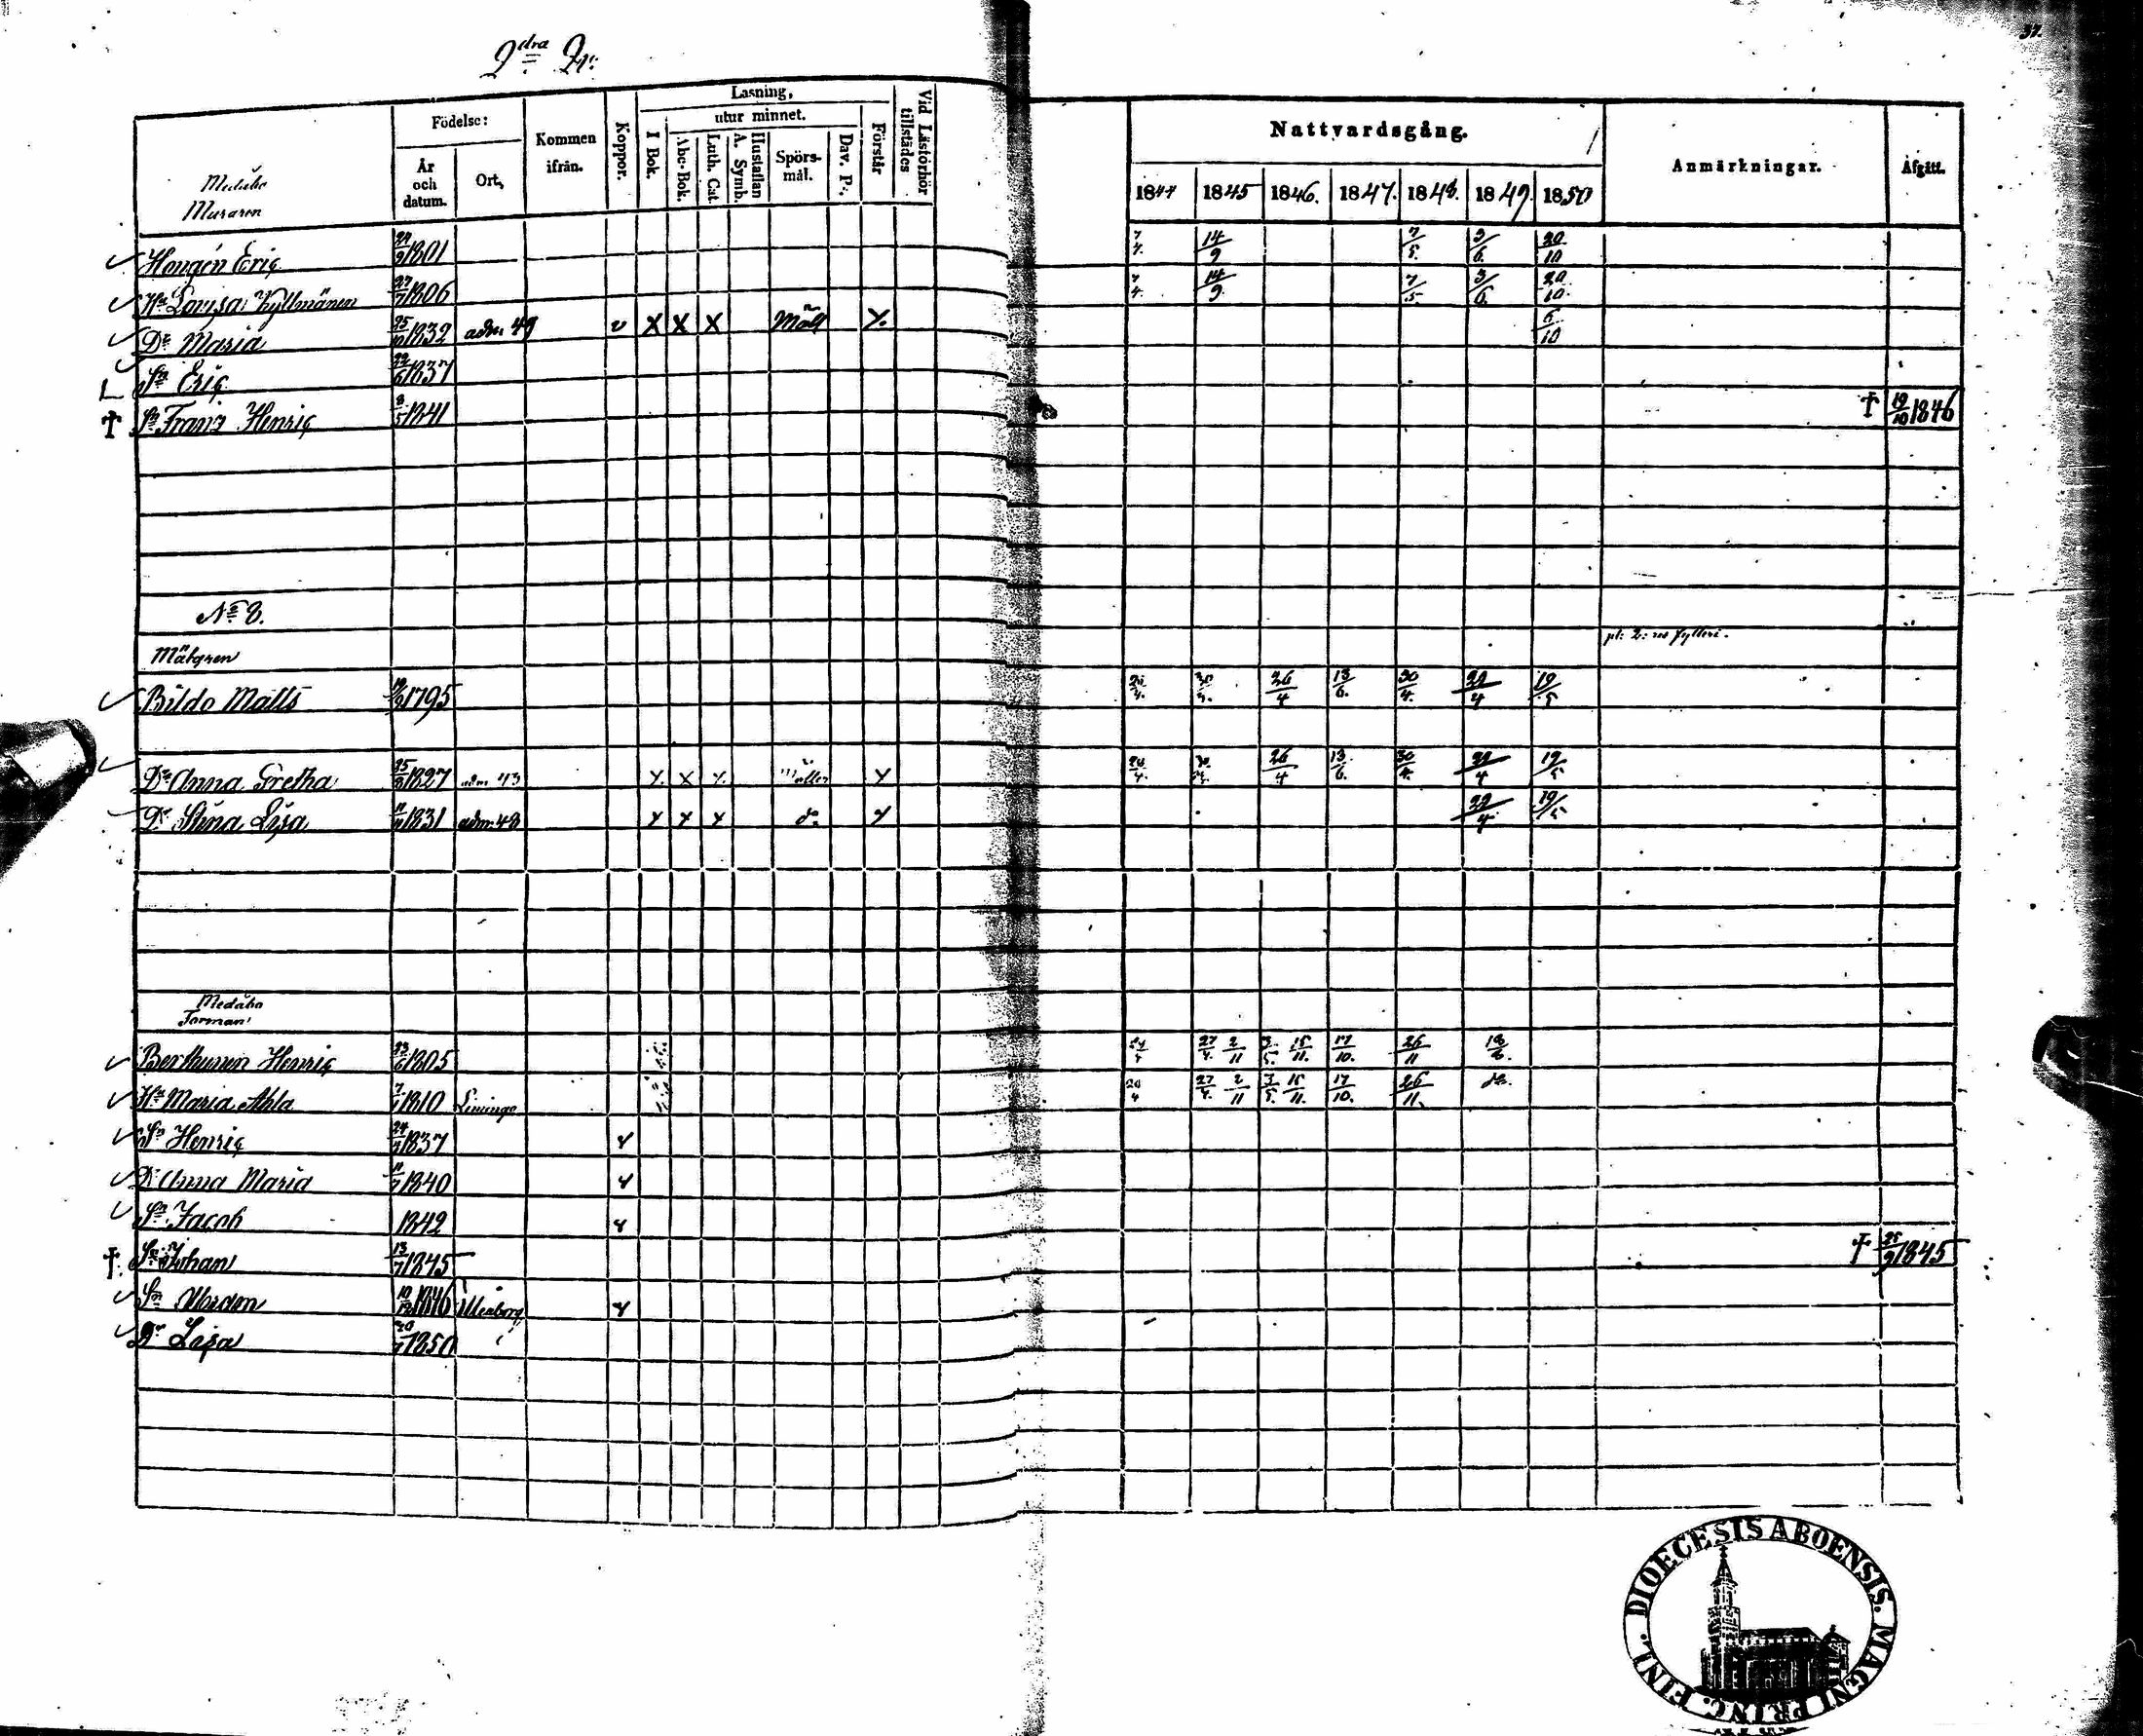 37.
2dra Qr:
Födelse:
År och datum.
Ort,
Kommen ifrån.
Koppor.
Läsning,
I Bok.
utur minnet.
Abc-Bok.
Luth. Cat.
Hustaflan A. Symb.
Spörs-mål.
Dav. P:.
Förstår
Vid Läsförhör tillstädes
Nattvardsgång.
1844 1845 1846. 1847. 1848. 1849. 1850
Anmärkningar.
Afgått.
Medåbo
Muraren
Hongén Eric 1801 7/4. 14/9 7/5. 3/6. 20/10
Hu Lovisa Kyllmänen 27/7 1806 7/4. 14/9 7/5. 3/6. 20/10.
Dr Maria 25/10 1832 adm 49 v X X X Mölf X. 6/10
Sn Eric 22/6 1837
† Sn Franz Henric 8/5 1841 † 19/10 1846
No 8.
Målgren
Bildo Matts 1795 26/4 13/6. 30/4. 29/4 19/5
Dr Anna Gretha 25/3 1827 adm 43 X. X X. Möller X 26/4 13/6. 30/4. 29/4 19/5
Dr Stina Lisa 11/11 1831 adm. 48 X X X do X 29/4 19/5
Medåbo
Forman
Berthunen Henric 23/6 1805 27/4. 2/11 3/5. 15/11. 17/10. 26/11 18/6.
Hu Maria Ahla 1810 Limingo 27/4. 2/11 3/5. 15/11. 17/10. 26/11. do.
Sn Henric 24/4 1837 v
Dr Anna Maria 1840 v
Sn Jacob 1842 v
† Sn Johan 13/7 1845 † 25/9 1845
Sn Abram 10/12 1846 Uleåborg v
Dr Lisa 1850
DIOECESIS ABOENSIS. MAGNI PRINC. FINL.